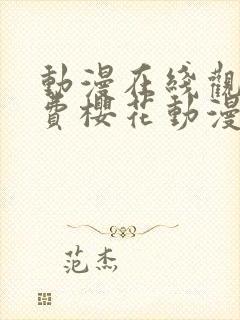 動漫在綫觀
費櫻花動漫
范杰